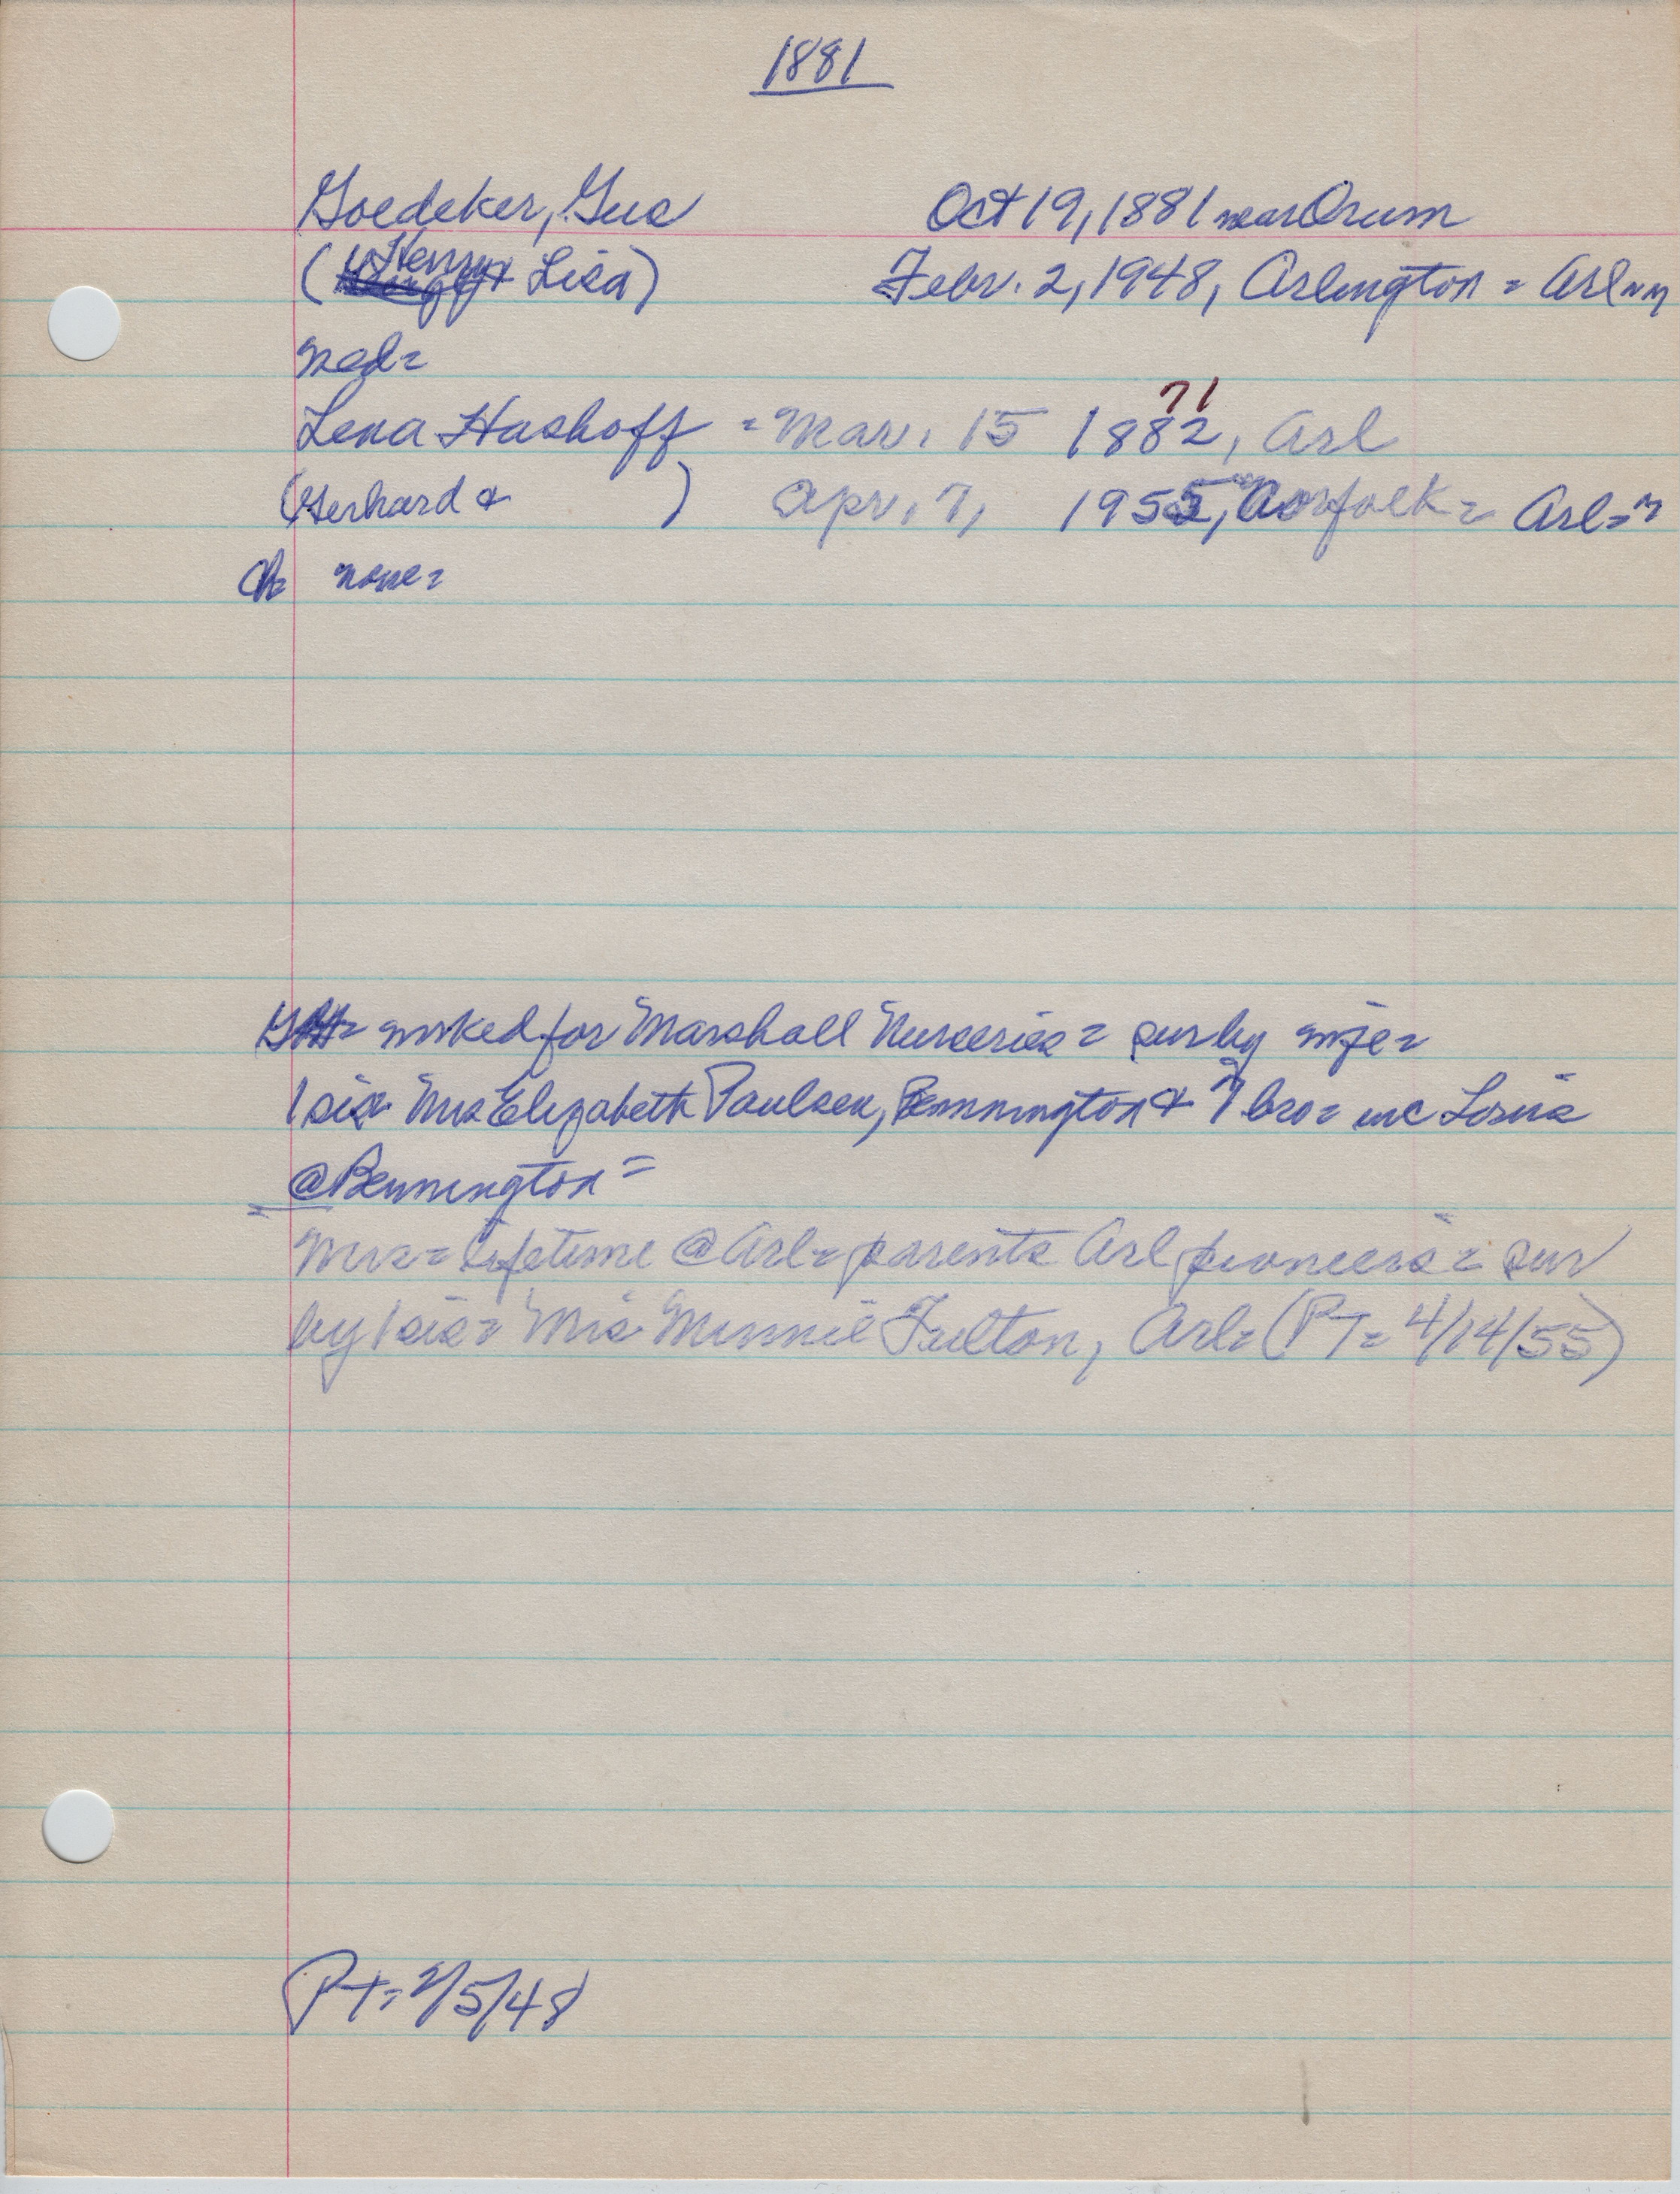 1881
Goedeker, Gus Oct 19, 1881 near Orum
(Henry & Lisa) Febr. 2, 1948, Arlington = Arl
med=
71
Lena Hashoff = Mar. 15 1882, Arl
(Gerhard & ) Apr. 7, 1955, Norfolk = Arl =
Ch= none=
worked for Marshall Nurseries = sur by wife =
1 sis Mrs Elizabeth Paulsen, Bennington & 7 bro = inc Louis
@ Bennington =
Mrs = lifetime @ Arl = parents Arl pioneers = sur
by 1 sis = Mrs Minnie Fulton, Arl = (PT = 4/14/55)
PT = 2/5/48